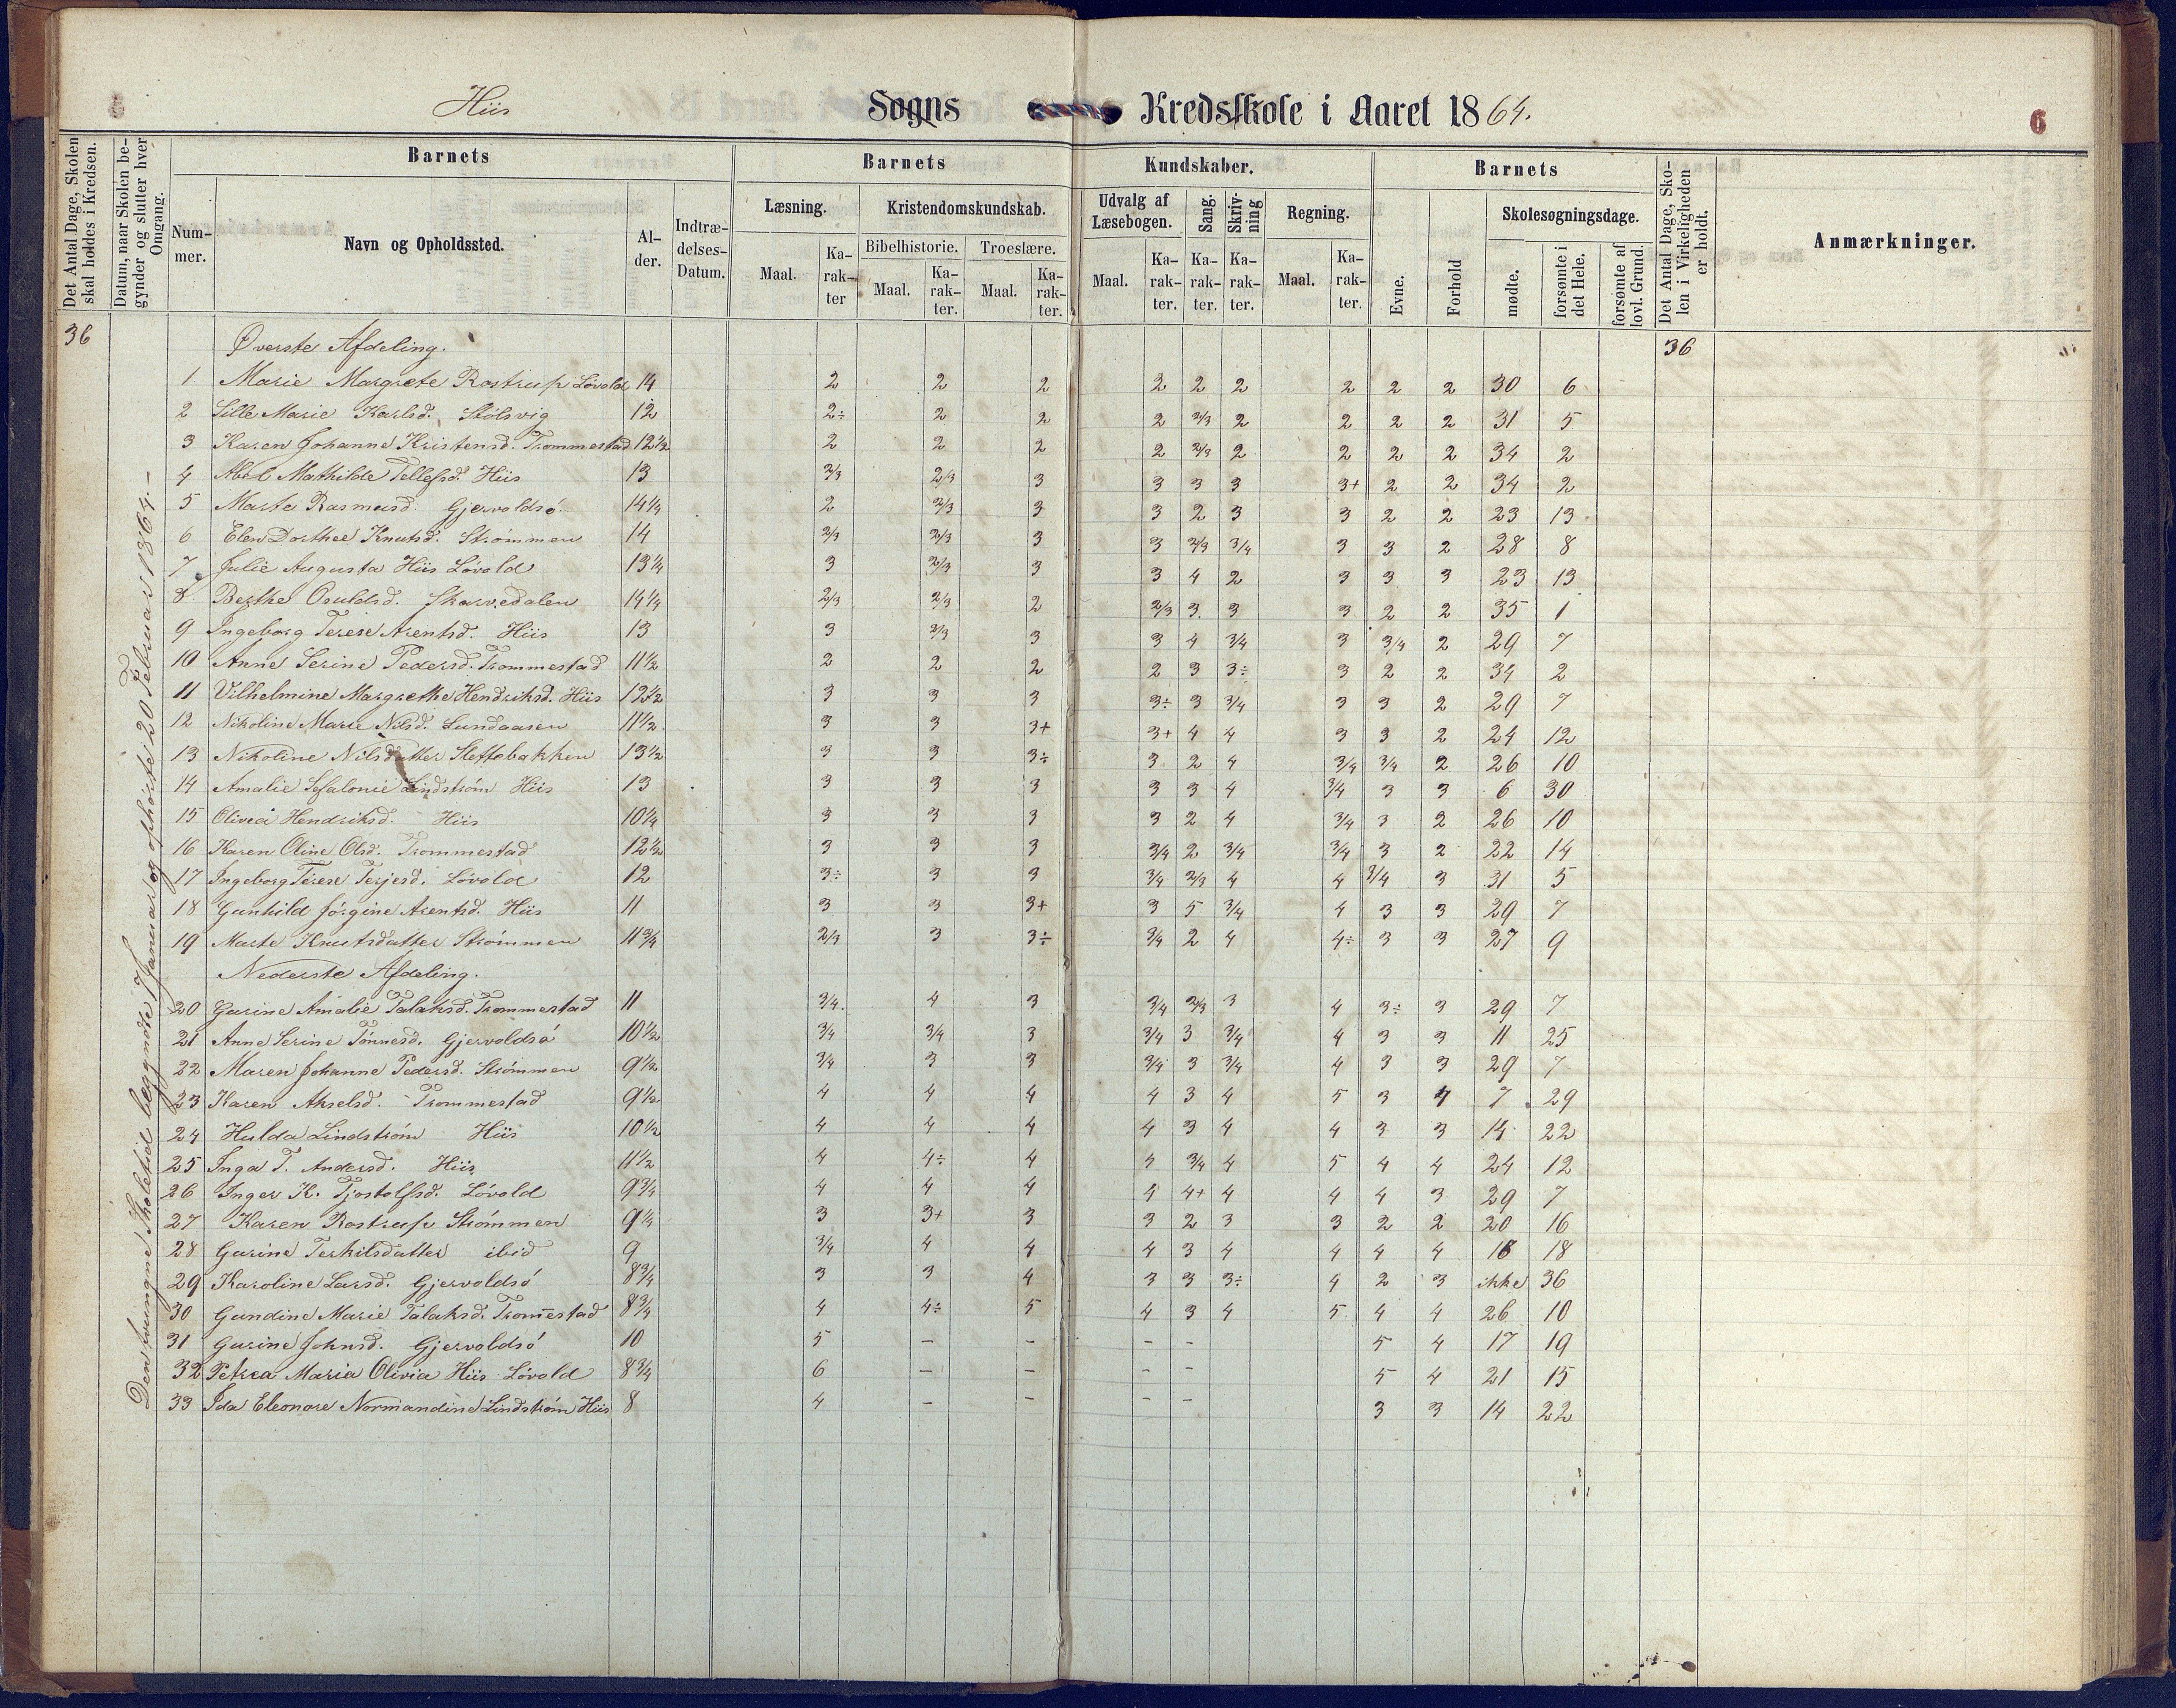 Hiis Sogns Kredsskole i Aaret 1864.
6
Det Antal Dage, Skolen skal holdes i Kredsen.
Datum, naar Skolen begynder og slutter hver Omgang.
Barnets Barnets Kundskaber. Barnets
Nummer. Navn og Opholdssted. Alder. Indtrædelses-Datum. Læsning. Kristendomskundskab. Udvalg af Læsebogen. Sang. Skrivning Regning. Evne. Forhold Skolesøgningsdage. Det Antal Dage, Skolen i Virkeligheden er holdt. Anmærkninger.
Bibelhistorie. Troeslære.
Maal. Karakter Maal. Karakter. Maal. Karakter. Maal. Karakter. Karakter. Karakter. Maal. Karakter. mødte. forsømte i det Hele. forsømte af lovl. Grund.
Den tvungne Skoletid begyndte 7 Januar og ophørte 20 Februar 1864.-
36 Øverste Afdeling. 36
1 Marie Margrete Rostrup Løvold 14 2 2 2 2 2 2 2 2 2 30 6
2 Sille Marie Karlsd. Stølsvig 12 2÷ 2 2 2 2/3 2 2 2 2 31 5
3 Karen Johanne Kristensd. Trommestad 12½ 2 2 2 2 2/3 2 2 2 2 34 2
4 Abel Mathilde Tellefsd. Hiis 13 2/3 2/3 3 3 3 3 3+ 2 2 34 2
5 Marte Rasmusd. Gjervoldsø 14¼ 2 2/3 3 3 2 3 3 2 2 23 13
6 Elen Dorthee Knutsd. Strømmen 14 2/3 2/3 3 3 2/3 3/4 3 3 2 28 8
7 Julie Augusta Hiis Løvold 13¼ 3 2/3 3 3 4 2 3 3 3 23 13
8 Berthe Osuldsd. Skarvedalen 14¼ 2/3 2/3 2 2/3 3 3 3 2 2 35 1
9 Ingeborg Terese Arentsd. Hiis 13 3 2/3 3 3 4 3/4 3 3/4 2 29 7
10 Anne Serine Pedersd. Trommestad 11½ 2 2 2 2 3 3÷ 3 2 2 34 2
11 Vilhelmine Margrethe Hendriksd. Hiis 12½ 3 3 3 3÷ 3 3/4 3 3 2 29 7
12 Nikoline Marie Nilsd. Lundaasen 11½ 3 3 3+ 3+ 4 4 3 3 2 24 12
13 Nikoline Nilsdatter Slettebakken 13½ 3 3 3÷ 3 2 4 3/4 3/4 2 26 10
14 Amalie Sefalonie Lindstrøm Hiis 13 3 3 3 3 3 4 3/4 3 3 6 30
15 Olivia Hendriksd. Hiis 10¼ 3 3 3 3 2 4 3/4 3 2 26 10
16 Karen Oline Olsd. Trommestad 12½ 3 3 3 3/4 2 3/4 3/4 3 2 22 14
17 Ingeborg Terese Terjesd. Løvold 12 3÷ 3 3 3/4 2/3 4 4 3/4 3 31 5
18 Gunhild Jørgine Arentsd. Hiis 11 3 3 3+ 3 5 3/4 4 3 3 29 7
19 Marte Knutsdatter Strømmen 11¾ 2/3 3 3÷ 3/4 2 4 4÷ 3 3 27 9
Nederste Afdeling.
20 Gurine Amalie Talaksd. Trommestad 11 3/4 4 3 3/4 2/3 3 4 3÷ 3 29 7
21 Anne Serine Tønnesd. Gjervoldsø 10½ 3/4 3/4 3 3/4 3 3/4 4 3 3 11 25
22 Maren Johanne Pedersd. Strømmen 9½ 3/4 3 3 3/4 3 3/4 4 3 3 29 7
23 Karen Akselsd. Trommestad 9½ 4 4 4 4 3 4 5 3 4 7 29
24 Hulda Lindstrøm Hiis 10½ 4 4 4 4 3 4 4 3 3 14 22
25 Inga T. Andersd. Hiis 11½ 4 4÷ 4 4 3/4 4 5 4 4 24 12
26 Inger K. Tjostolfsd. Løvold 9¾ 4 4 4 4 4+ 4 4 4 3 29 7
27 Karen Rostrup Strømmen 9¼ 3 3+ 3 3 2 3 3 2 2 20 16
28 Gurine Terkilsdatter ibid 9 3/4 4 4 4 3 4 4 4 4 18 18
29 Karoline Larsd. Gjervoldsø 8¾ 3 3 4 3 3 3÷ 4 2 3 ikke 36
30 Gundine Marie Talaksd. Trom̅estad 8¾ 4 4÷ 5 4 3 4 5 4 4 26 10
31 Gurine Johnsd. Gjervoldsø 10 5 – – – – 5 4 17 19
32 Petrea Maria Olivia Hiis Løvold 8¾ 6 – – – – 5 4 21 15
33 Ida Eleonore Normandine Lindstrøm Hiis 8 4 – – – – 3 3 14 22